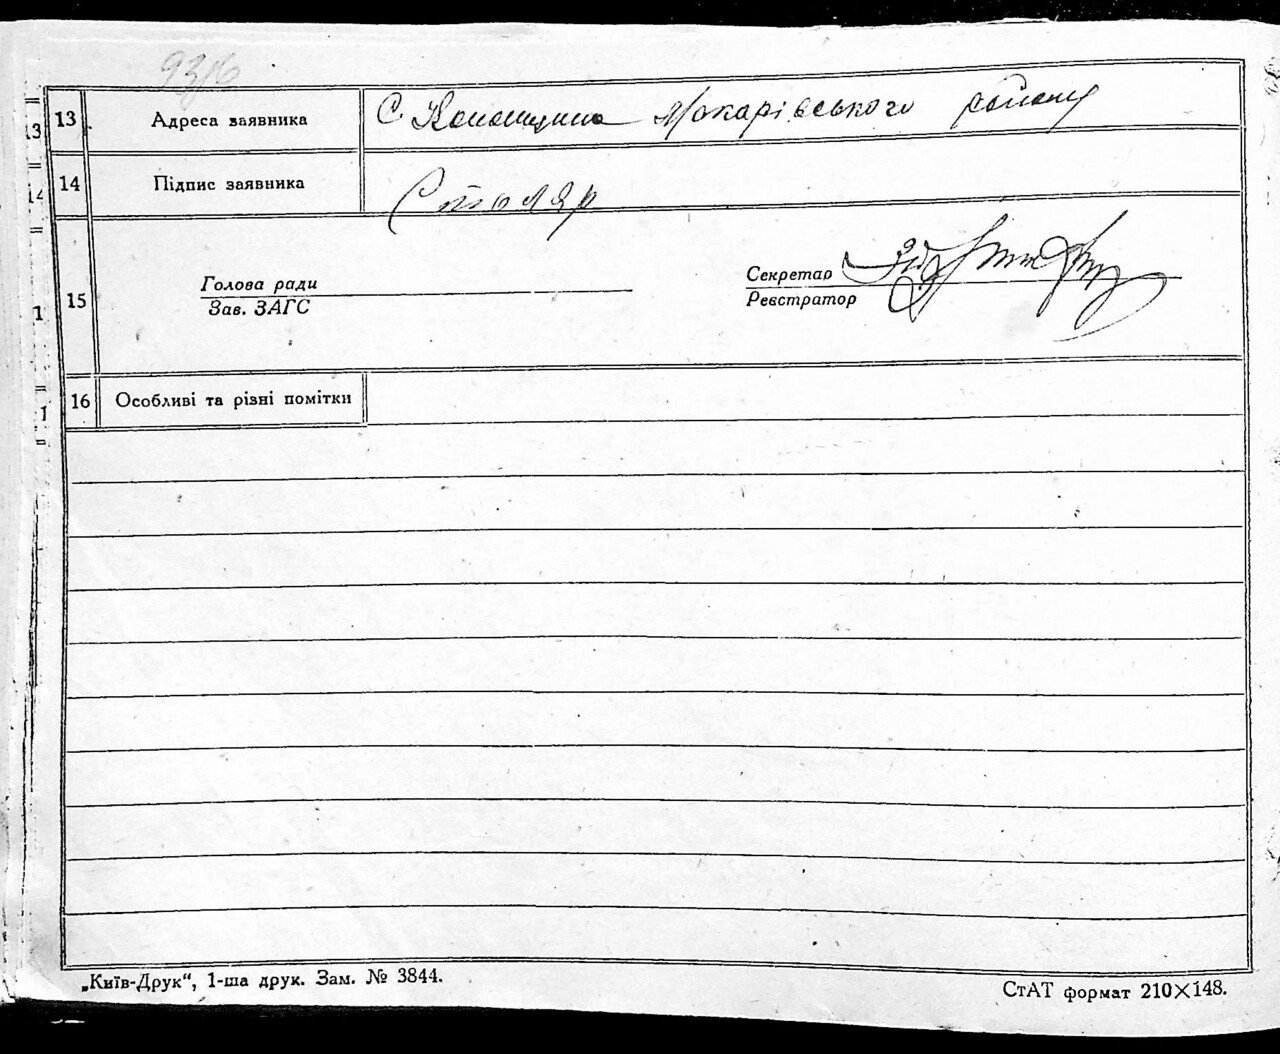 93/6
13 Адреса заявника С. Колонщина Макарівського району
14 Підпис заявника Столяр
15 Голова ради
Зав. ЗАГС
Секретар
Реєстратор
16 Особливі та різні помітки
„Київ-Друк“, 1-ша друк. Зам. № 3844.
СтАТ формат 210×148.